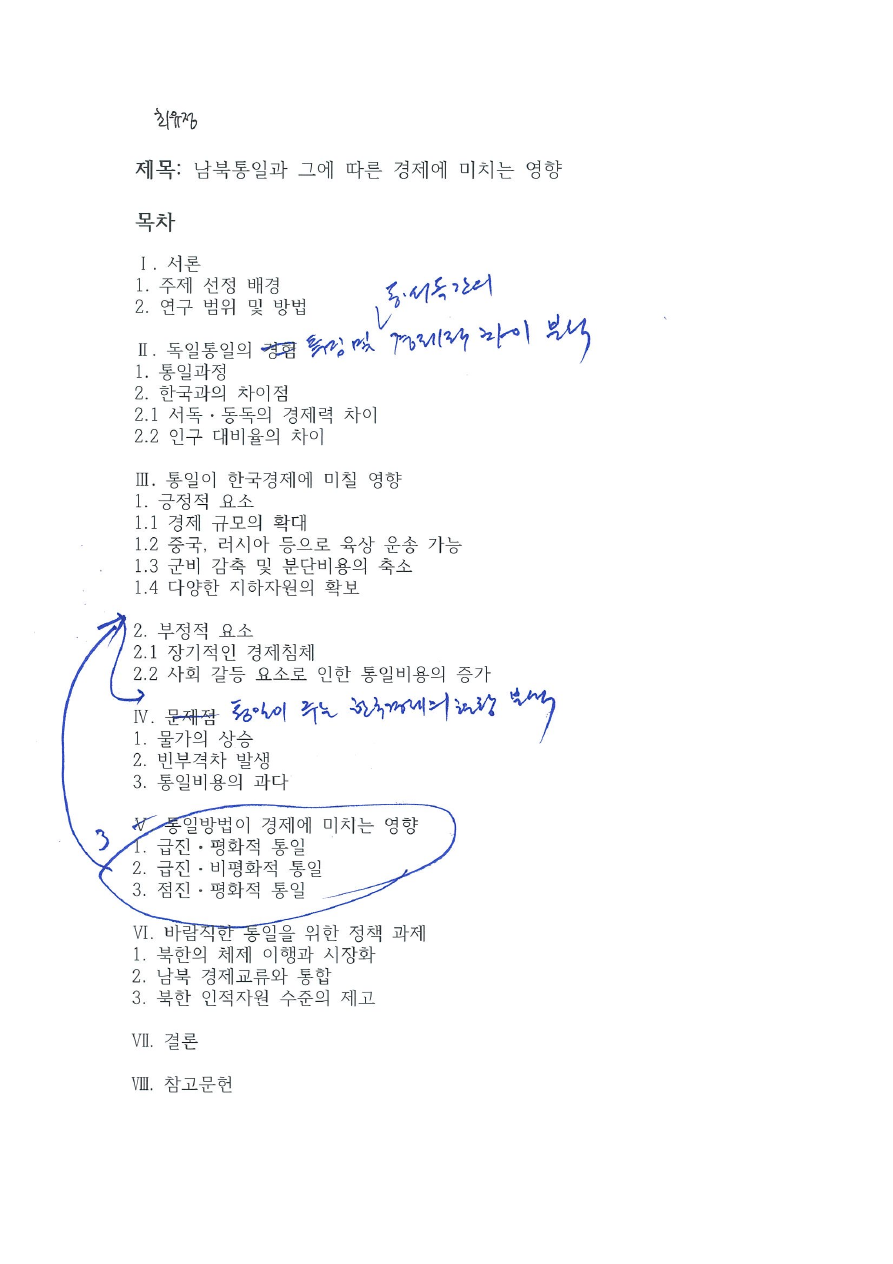 최유정
제목: 남북통일과 그에 따른 경제에 미치는 영향
목차
Ⅰ. 서론
1. 주제 선정 배경
동·서독간의
2. 연구 범위 및 방법
Ⅱ. 독일통일의 경험 특징 및 경제력 차이 분석
1. 통일과정
2. 한국과의 차이점
2.1 서독·동독의 경제력 차이
2.2 인구 대비율의 차이
Ⅲ. 통일이 한국경제에 미칠 영향
1. 긍정적 요소
1.1 경제 규모의 확대
1.2 중국, 러시아 등으로 육상 운송 가능
1.3 군비 감축 및 분단비용의 축소
1.4 다양한 지하자원의 확보
2. 부정적 요소
2.1 장기적인 경제침체
2.2 사회 갈등 요소로 인한 통일비용의 증가
Ⅳ. 문제점 통일이 주는 한국경제의 분석
1. 물가의 상승
2. 빈부격차 발생
3. 통일비용의 과다
3 Ⅴ. 통일방법이 경제에 미치는 영향
1. 급진·평화적 통일
2. 급진·비평화적 통일
3. 점진·평화적 통일
Ⅵ. 바람직한 통일을 위한 정책 과제
1. 북한의 체제 이행과 시장화
2. 남북 경제교류와 통합
3. 북한 인적자원 수준의 제고
Ⅶ. 결론
Ⅷ. 참고문헌